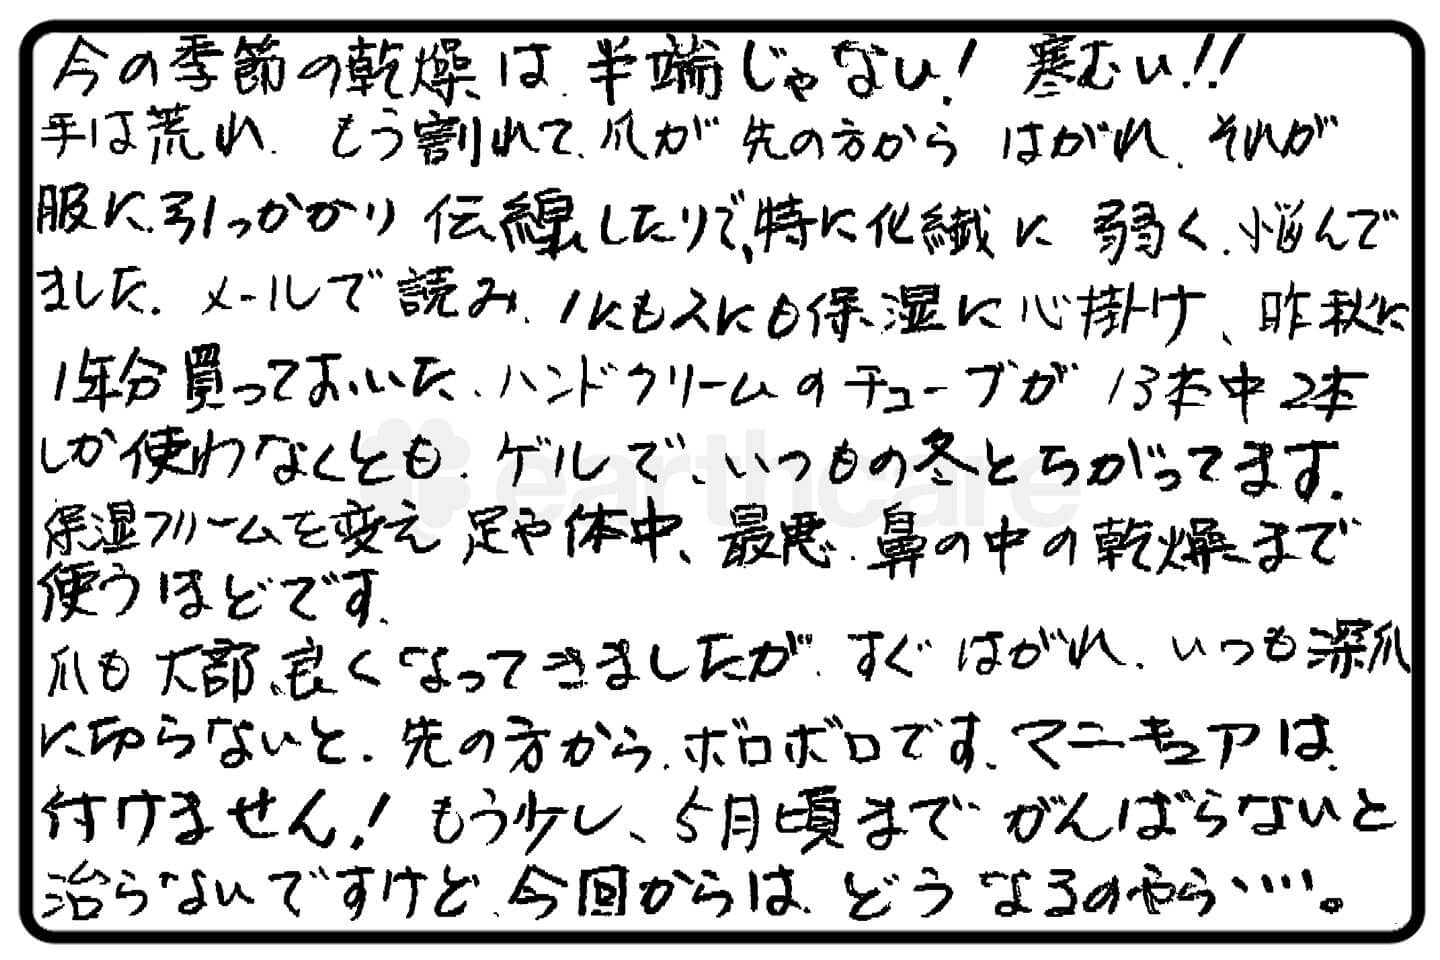 今の季節の乾燥は、半端じゃない！ 寒むい!!
手は荒れ、もう割れて、爪が先の方からはがれ、それが
服に、引っかかり伝線したりで、特に化繊に弱く、悩んで
ました。メールで読み、1にも2にも保湿に心掛け、昨秋に
1年分買っておいた、ハンドクリームのチューブが13本中2本
しか使わなくとも、ゲルで、いつもの冬とちがってます。
保湿クリームを変え足や体中、最悪、鼻の中の乾燥まで
使うほどです。
爪も大部、良くなってきましたが、すぐはがれ、いつも深爪
に切らないと、先の方から、ボロボロです、マニキュアは、
付けません！もう少し、5月頃までがんばらないと
治らないですけど、今回からは、どうなるのやら・・・・。
earthcare